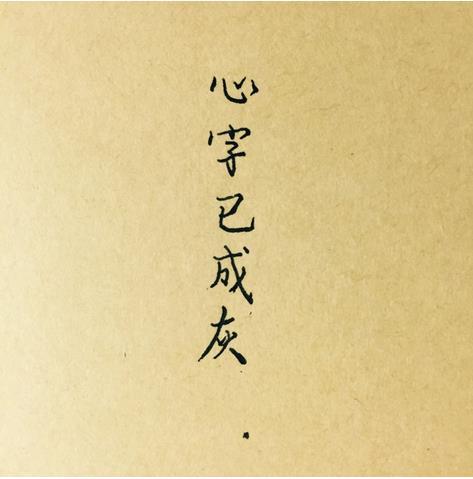 心字已成灰